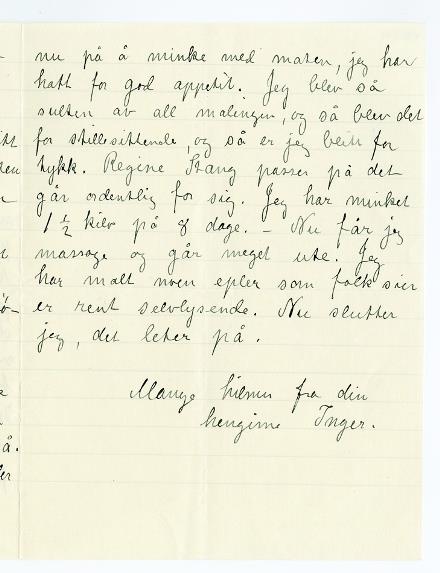 nu på å minke med maten, jeg har
hatt for god appetit. Jeg blev så
sulten av all malingen, og så blev det
for stillesittende, og så er jeg blitt for
tykk. Regine Stang passer på det
går ordentlig for sig. Jeg har minket
1 1/2 kilo på 8 dage. – Nu får jeg
massage og går meget ute. Jeg
har malt noen epler som folk sier
er rent selvlysende. Nu slutter
jeg, det leter på.
Mange hilsner fra din
hengivne Inger.